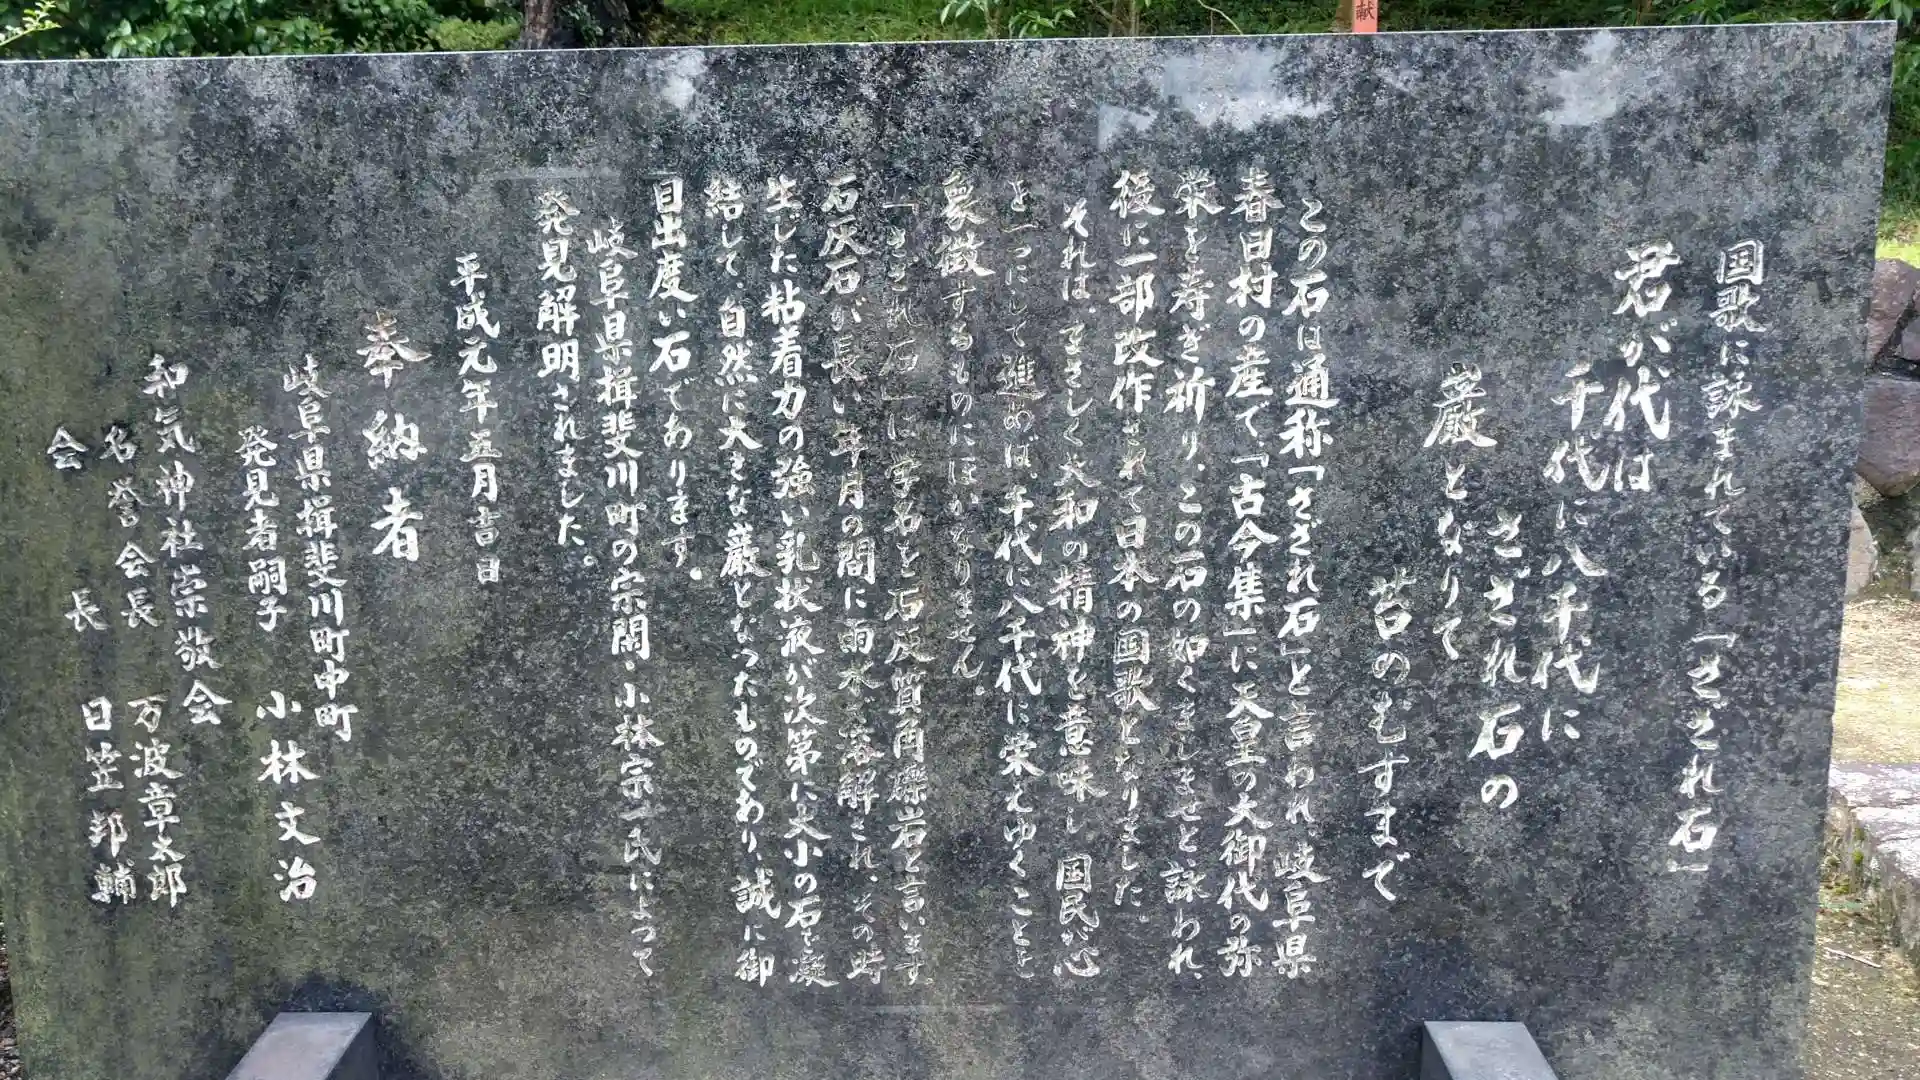 国歌に詠まれている「さざれ石」
君が代は
千代に八千代に
さざれ石の
巌となりて
苔のむすまで
この石は通称「さざれ石」と言われ、岐阜県
春日村の産で、「古今集」に天皇の大御代の弥
栄を寿ぎ祈り、この石の如くましませと、詠われ、
後に一部改作されて日本の国歌となりました。
それは、まさしく大和の精神を意味し、国民が心
を一つにして進めば、千代に八千代に栄えゆくことを
象徴するものにほかなりません。
「さざれ石」は学名を石灰質角礫岩と言います。
石灰石が長い年月の間に雨水で溶解され、その時
生じた粘着力の強い乳状液が次第に大小の石を凝
結して、自然に大きな巌となったものであり、誠に御
目出度い石であります。
岐阜県揖斐川町の宗閑・小林宗一氏によって、
発見解明されました。
平成元年五月吉日
奉納者
岐阜県揖斐川町中町
発見者嗣子 小林文治
和気神社崇敬会
名誉会長 万波章太郎
会長 日笠邦輔
献